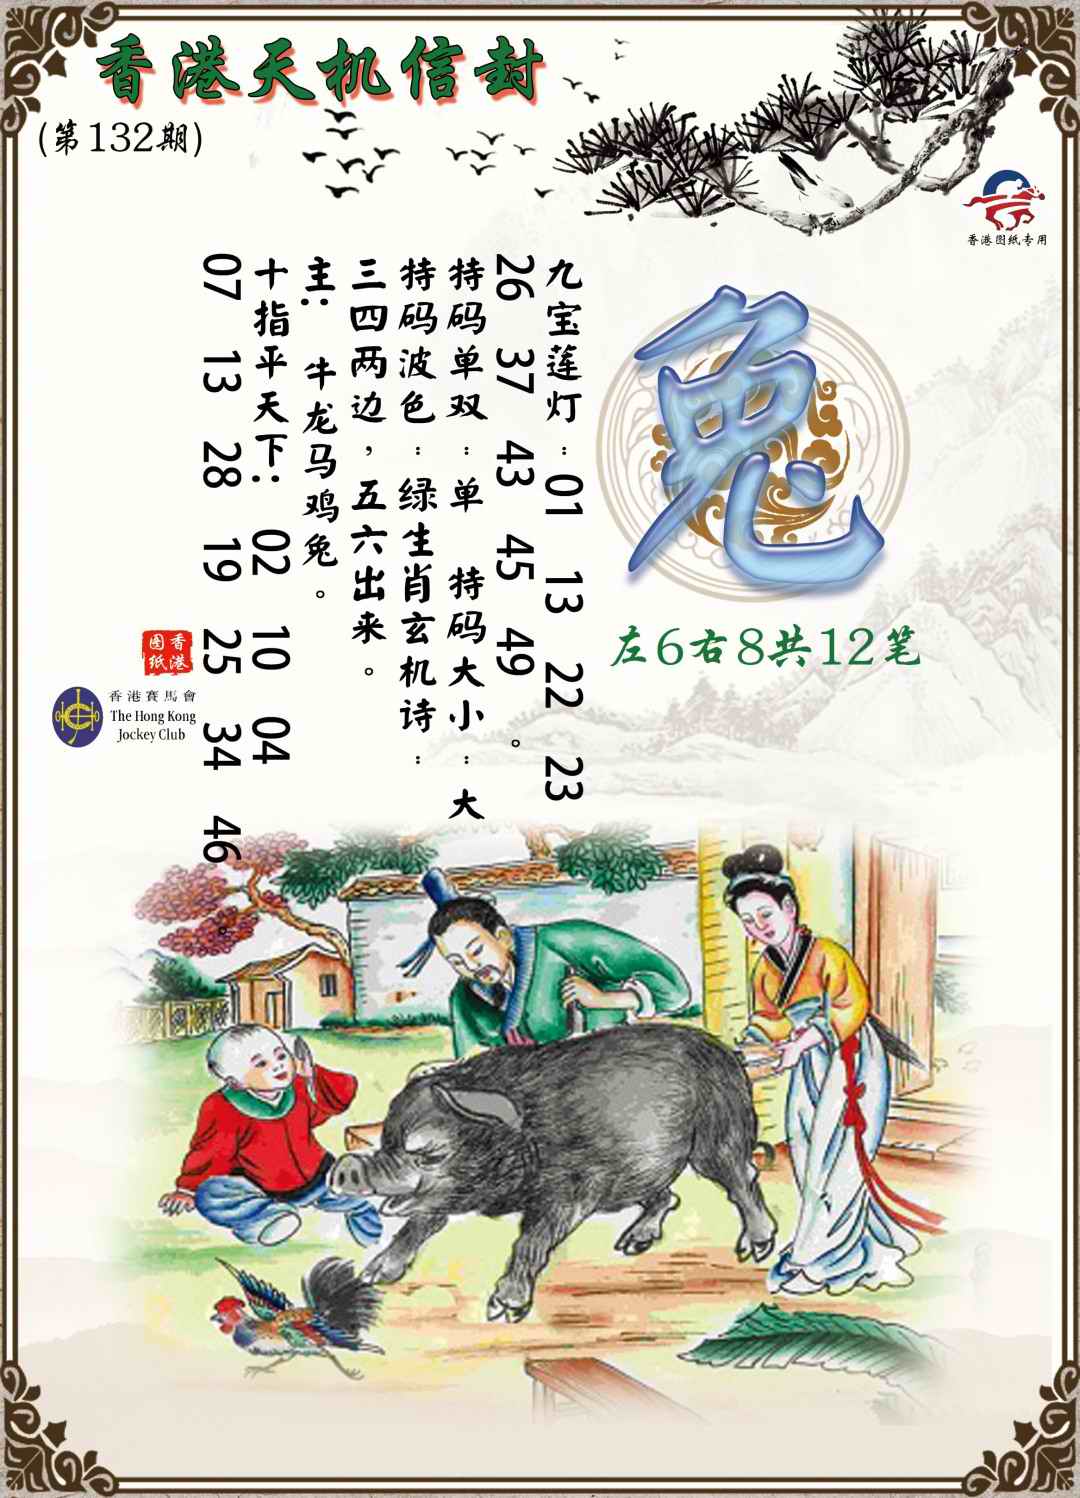 香港天机信封
(第132期)
香港图纸专用
兔
左6右8共12笔
九宝莲灯：01 13 22 23
26 37 43 45 49。
特码单双：单 特码大小：大
特码波色：绿生肖玄机诗：
三四两边，五六出来。
主： 牛龙马鸡兔。
十指平天下： 02 10 04
07 13 28 19 25 34 46。
香港
图纸
香港賽馬會
The Hong Kong
Jockey Club